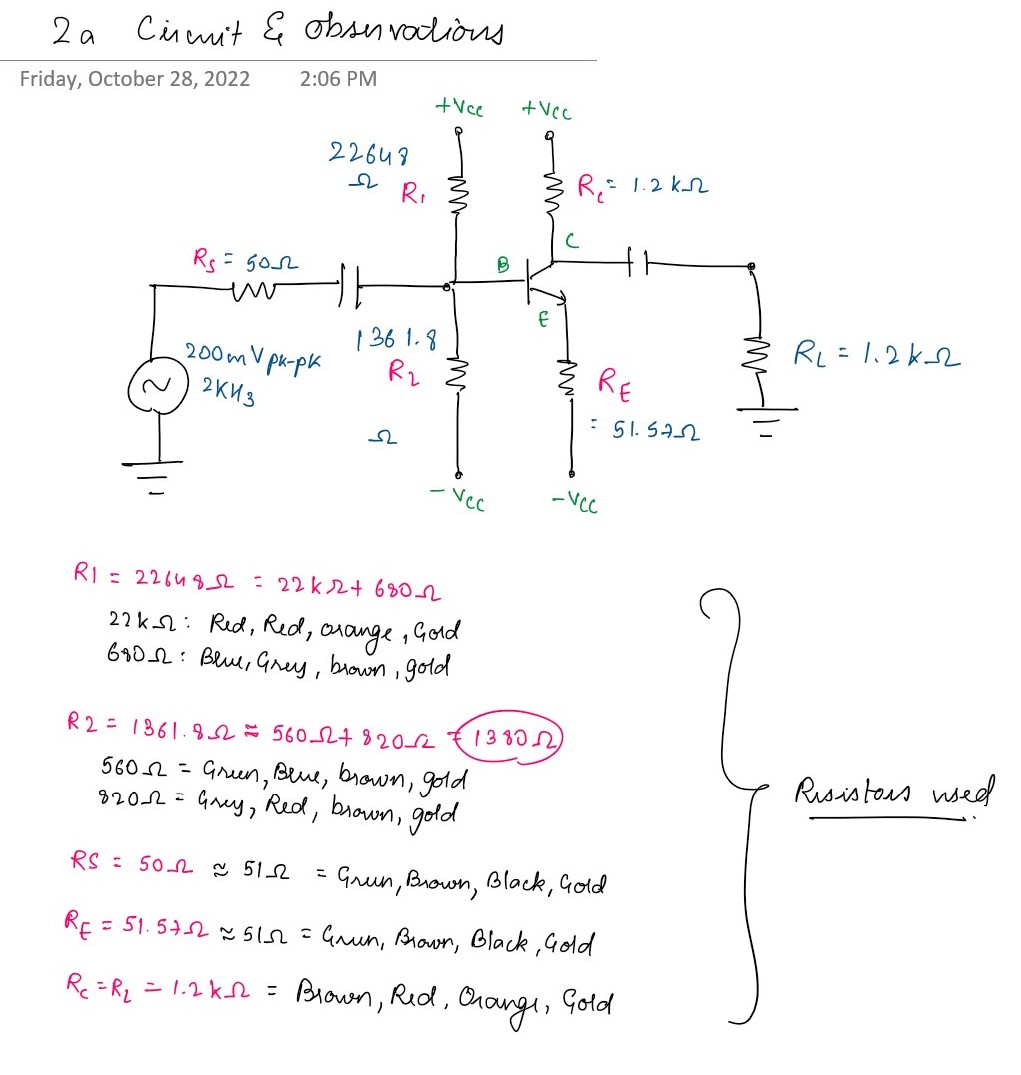 2a Circuit & Observations
Friday, October 28, 2022 2:06 PM
+Vcc +Vcc
22648
Ω R1
Rc = 1.2 kΩ
C
Rs = 50Ω
B
E
200mV pk-pk
2KHz
1361.8
R2
Ω
RE
= 51.57Ω
RL = 1.2 kΩ
-Vcc -Vcc
R1 = 22648Ω = 22kΩ + 680Ω
22kΩ : Red, Red, orange, Gold
680Ω : Blue, Grey, brown, gold
R2 = 1361.8Ω ≈ 560Ω + 820Ω = 1380Ω
560Ω = Green, Blue, brown, gold
820Ω = Grey, Red, brown, gold
RS = 50Ω ≈ 51Ω = Green, Brown, Black, Gold
RE = 51.57Ω ≈ 51Ω = Green, Brown, Black, Gold
Rc = RL = 1.2 kΩ = Brown, Red, Orange, Gold
Resistors used